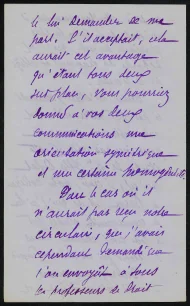 le lui demander de ma
part. S'il acceptait, cela
aurait cet avantage
qu'étant tous deux
sur place, vous pourriez
donner à vos deux
communications une
orientation symétrique
et une certaine homogénéité.
Dans le cas où il
n'aurait pas reçu notre
circulaire, que j'avais
cependant demandé que
l'on envoyât à tous
les professeurs de Droit